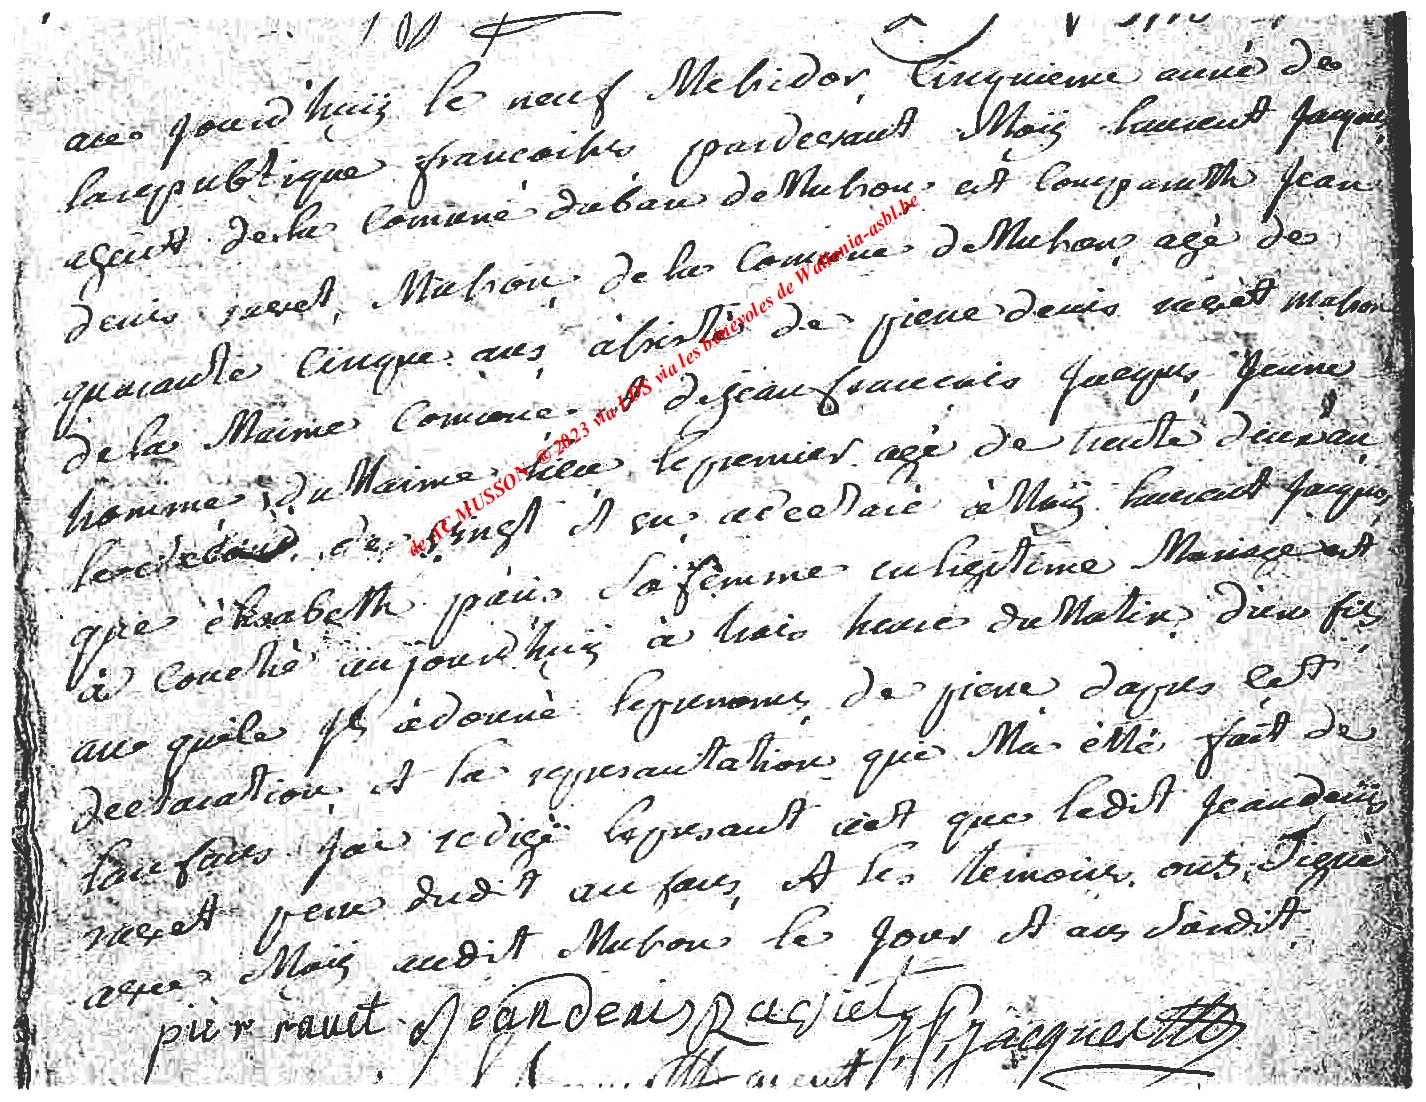 au jourd'huÿ le neuf Mesidor Cinquieme anné de
larepublique francoises pardevant Moÿ laurent Jacques
agent de la Comune duban de Musson est Comparuth Jean
denis raset Musson de la Comune de Musson agé de
quarante Cinque ans àsisté de piere denis raset musson
de la Maime Comune et de jean francois Jacques Jeune
homme du Maime lieu le premier agé de trente deux an
le de vingt et un a declaré à Moÿ laurent Jacques
que èlisabeth paris Sa femme en legitime Mariage est
à Couché aujourdhuÿ à trois heure du Matin d'un fils
au quele Jl à donné le prenoms de piere d'apres Cest
declaration et la represantation que Ma étté fait de
lanfans Jai redigé le presant act que ledit Jean denis
raset pere dudit anfans et les temoins ons Signé
avec Moÿ audit Musson le Jour et ans Sudit
pier ravet Jean denis Raset J F Jacques
laurent
de AC MUSSON © 2023 via LDS via les bénévoles de Wallonia-asbl.be